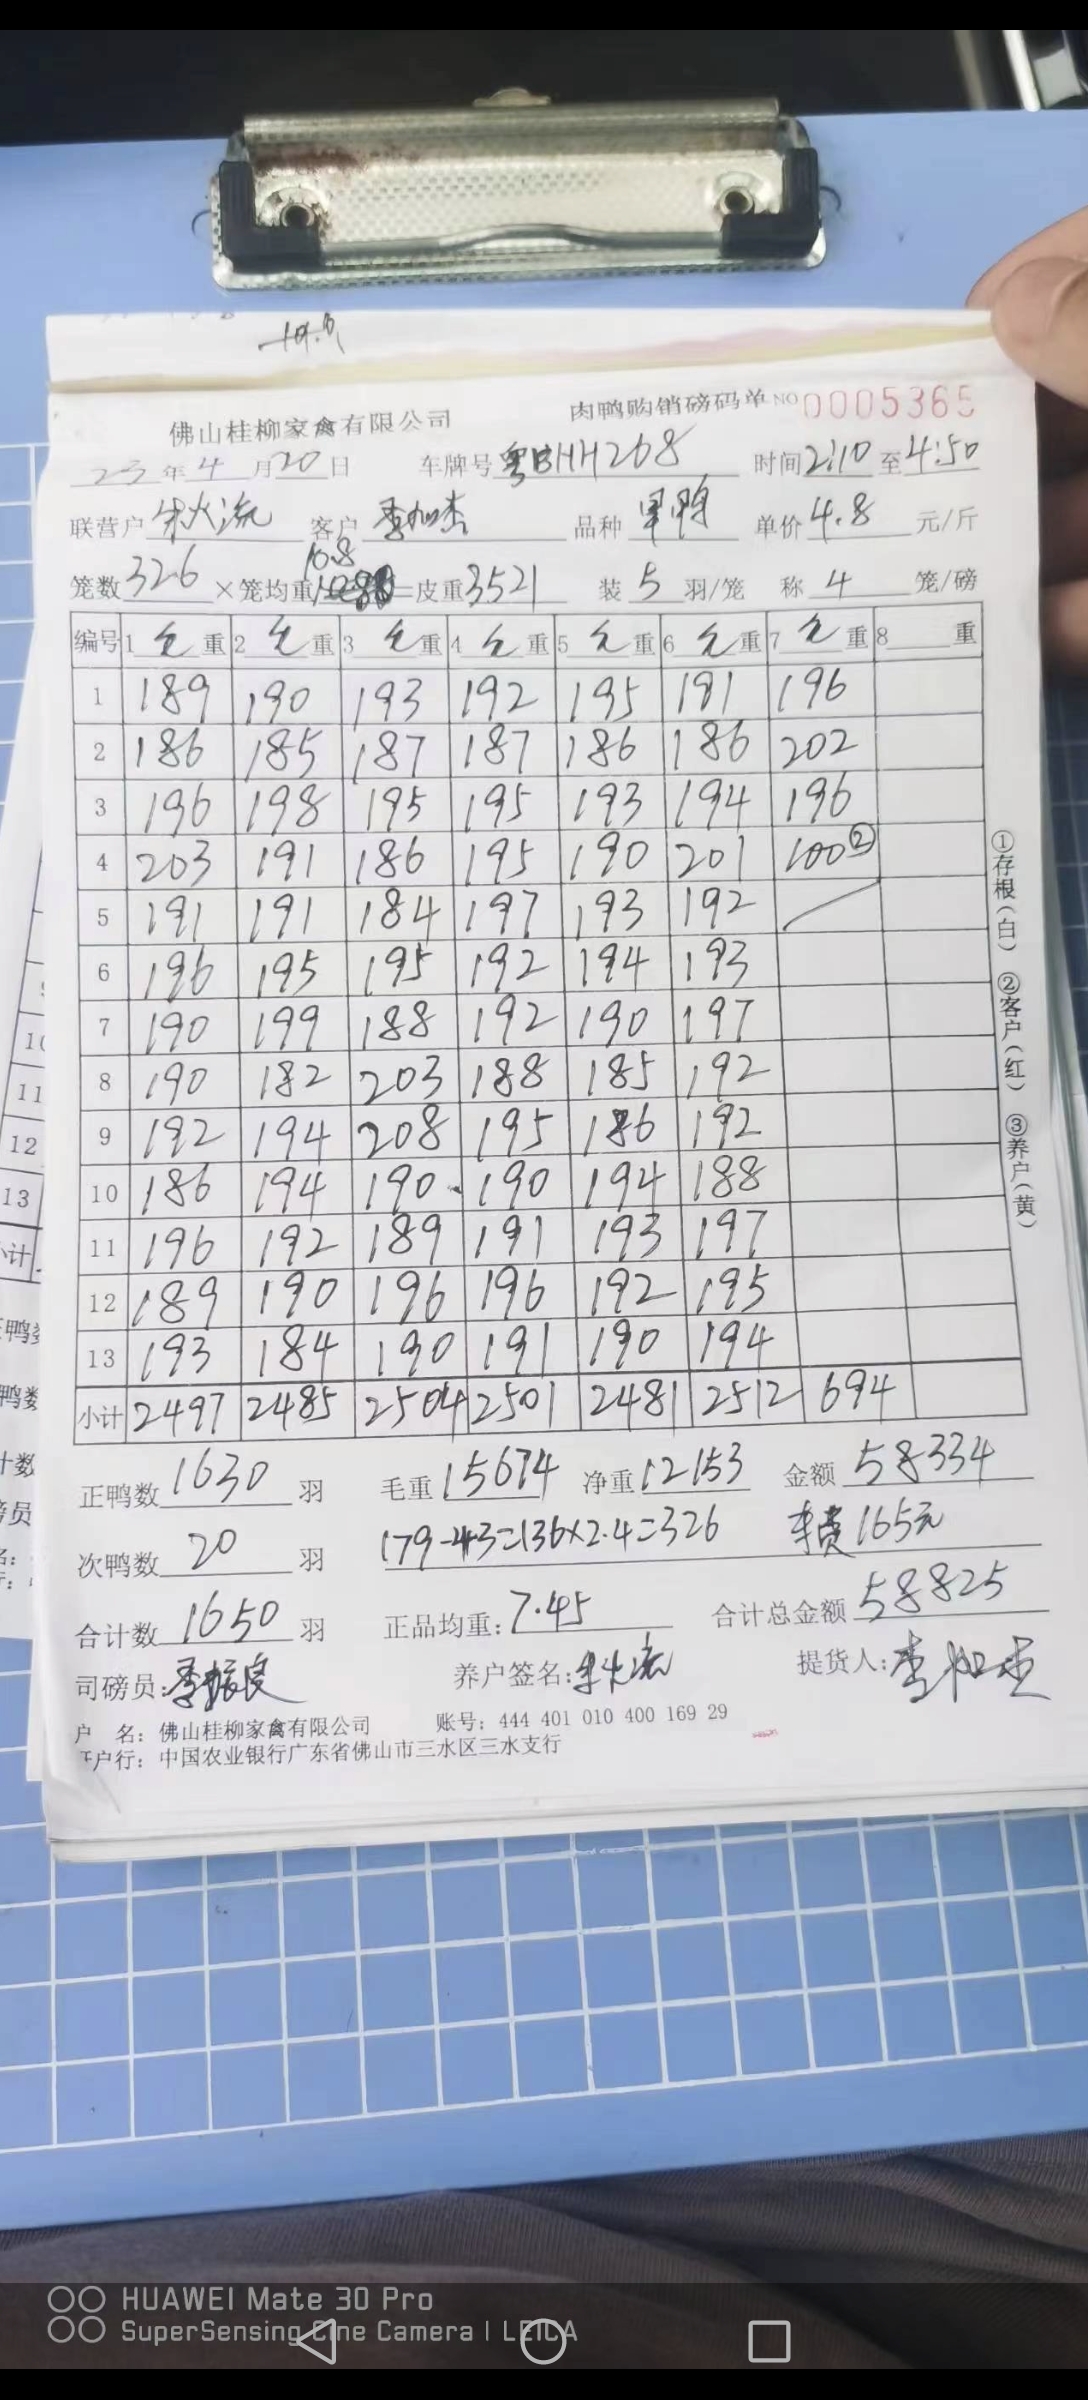 佛山桂柳家禽有限公司 肉鸭购销磅码单 NO 0005365
23年4月20日 车牌号 粤BHH268 时间2:10至4:50
联营户 客户 李加杰 品种 单价4.8元/斤
10.8
笼数326×笼均重 =皮重3521 装5羽/笼 称4笼/磅
编号 1 毛重 2 毛重 3 毛重 4 毛重 5 毛重 6 毛重 7 毛重 8 重
1 189 190 193 192 195 191 196
2 186 185 187 187 186 186 202
3 196 198 195 195 193 194 196
4 203 191 186 195 190 201 100②
5 191 191 184 197 193 192
6 196 195 195 192 194 193
7 190 199 188 192 190 197
8 190 182 203 188 185 192
9 192 194 208 195 186 192
10 186 194 190 190 194 188
11 196 192 189 191 193 197
12 189 190 196 196 192 195
13 193 184 190 191 190 194
小计 2497 2485 2504 2501 2481 2512 694
正鸭数1630羽 毛重15674 净重12153 金额58334
次鸭数20羽 179-43=136×2.4=326 车费165元
合计数1650羽 正品均重:7.45 合计总金额58825
司磅员:李振良 养户签名: 提货人:李加杰
户 名:佛山桂柳家禽有限公司 账号:444 401 010 400 169 29
户行:中国农业银行广东省佛山市三水区三水支行
①存根(白) ②客户(红) ③养户(黄)
10
11
12
13
HUAWEI Mate 30 Pro
SuperSensing Cine Camera | LEICA